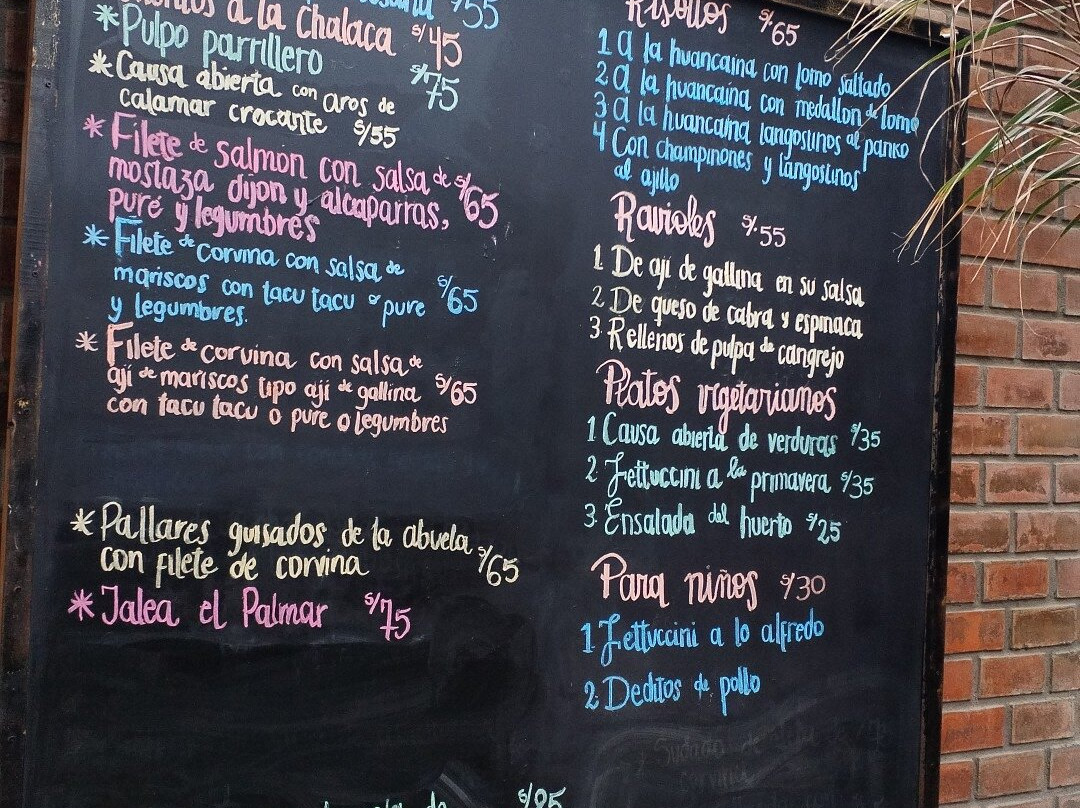 S/55
a la Chalaca S/45
* Pulpo parrillero S/75
* Causa abierta con aros de
calamar crocante S/55
* Filete de salmon con salsa de
mostaza dijon y alcaparras, S/65
puré y legumbres
* Filete de corvina con salsa de
mariscos con tacu tacu o pure S/65
y legumbres.
* Filete de corvina con salsa de
ají de mariscos tipo ají de gallina S/65
con tacu tacu o pure o legumbres
* Pallares guisados de la abuela
con filete de corvina S/65
* Jalea el Palmar S/75
de S/85
Risottos S/65
1 A la huancaina con lomo saltado
2 A la huancaina con medallon de lomo
3 A la huancaina langostinos al panko
4 Con champiñones y langostinos
al ajillo
Ravioles S/.55
1. De ají de gallina en su salsa
2. De queso de cabra y espinaca
3 Rellenos de pulpa de cangrejo
Platos vigetarianos
1. Causa abierta de verduras S/35
2 Fettuccini a la primavera S/35
3. Ensalada del huerto S/25
Para niños S/30
1 Fettuccini a lo alfredo
2. Deditos de pollo